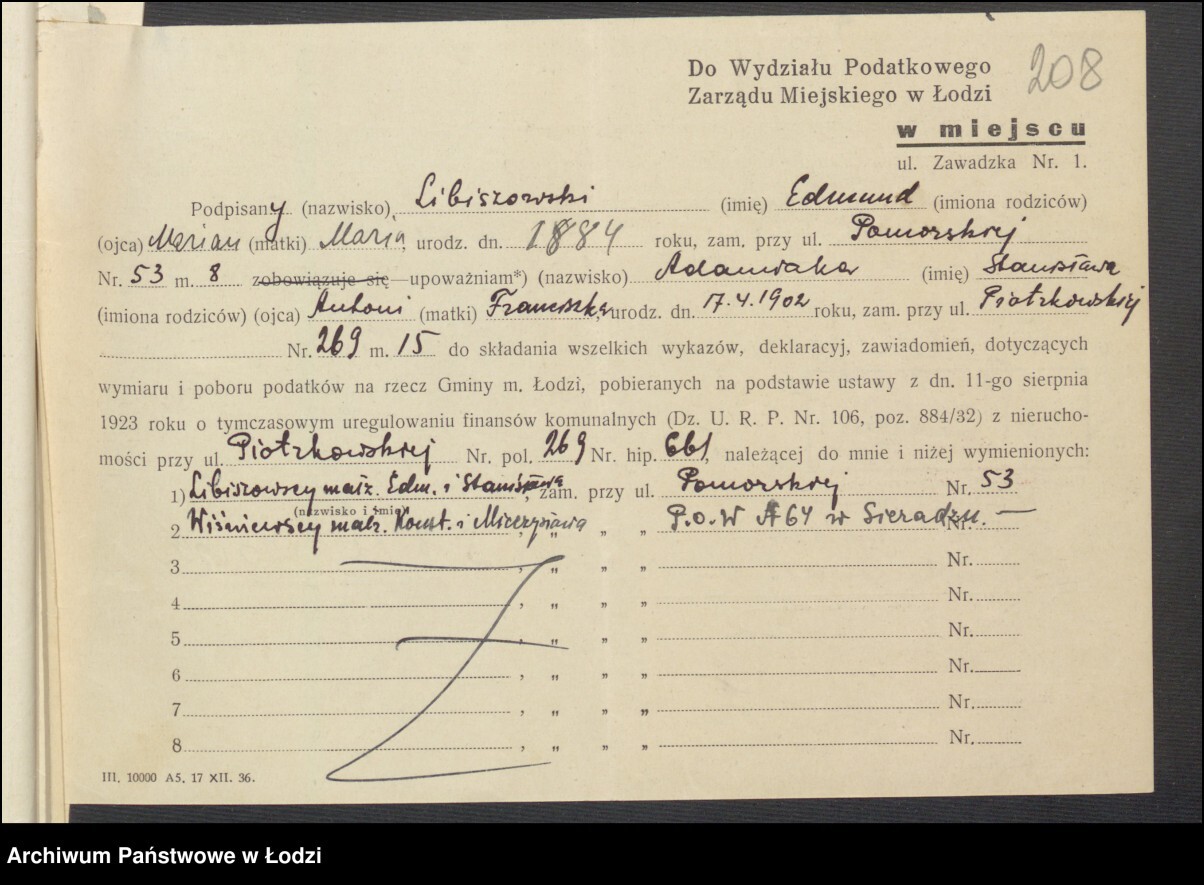 208
Do Wydziału Podatkowego
Zarządu Miejskiego w Łodzi
w miejscu
ul. Zawadzka Nr. 1.
Podpisany (nazwisko) Libiszowski (imię) Edmund (imiona rodziców)
(ojca) Marian (matki) Maria, urodz. dn. 1884 roku, zam. przy ul. Pomorskiej
Nr. 53 m. 8 zobowiązuje się upoważniam*) (nazwisko) Adamiaka (imię) Stanisława
(imiona rodziców) (ojca) Antoni (matki) Franciszka, urodz. dn. 17.4.1902 roku, zam. przy ul. Piotrkowskiej
Nr. 269 m. 15 do składania wszelkich wykazów, deklaracyj, zawiadomień, dotyczących
wymiaru i poboru podatków na rzecz Gminy m. Łodzi, pobieranych na podstawie ustawy z dn. 11-go sierpnia
1923 roku o tymczasowym uregulowaniu finansów komunalnych (Dz. U. R. P. Nr. 106, poz. 884/32) z nierucho-
mości przy ul. Piotrkowskiej Nr. pol. 269 Nr. hip. 661, należącej do mnie i niżej wymienionych:
1) Libiszowscy małż. Edm. i Stanisława, zam. przy ul. Pomorskiej Nr. 53
(nazwisko i imię)
2 Wiśniewscy małż. Konst. i Mieczysława, „ „ „ P.O.W № 64 w Sieradzu. — Nr.
3 , „ „ „ Nr.
4 , „ „ „ Nr.
5 , „ „ „ Nr.
6 , „ „ „ Nr.
7 , „ „ „ Nr.
8 , „ „ „ Nr.
III. 10000 A5. 17 XII. 36.
Archiwum Państwowe w Łodzi